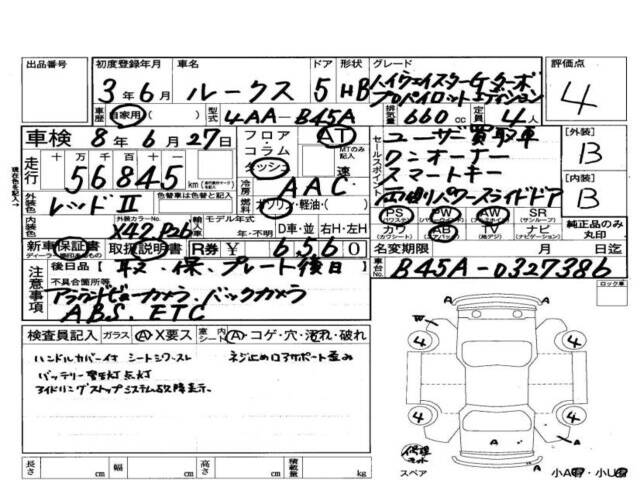 出品番号
初度登録年月
3年6月
車名
ルークス
ドア
5
形状
HB
グレード
ハイウェイスターGターボ
プロパイロットエディション
評価点
4
車歴
自家用 ( )
型式
4AA-B45A
排気量
660 cc
定員
4人
車検
8年6月27日
フロア
コラム
ダッシュ
AT
MTのみ記入
速
セールスポイント
ユーザー買取車
ワンオーナー
スマートキー
両側パワースライドドア
[外装]
B
[内装]
B
走行
十万 万 千 百 十
56845 km
冷房
AAC
外装色
レッドⅡ
色替車は色替と記入
燃料
ガソリン・軽油・( )
外装カラーNo.
X42 P26
輸入車
モデル年式
年・不明
D車・並
右H・左H
PS
PW
AW
SR
(サンルーフ)
カワ
(カワシート)
AB
(エアバッグ)
TV
(アナログ・デジ)
ナビ
(ナビゲーション)
純正品のみ丸印
新車保証書
取扱説明書
R券
¥ 6560
名変期限
月 日迄
注意事項
後日品
取・保・プレート後日
不具合箇所等
アラウンドビューカメラ、バックカメラ
A.B.S. ETC
車台No.
B45A-0327386
ロック車
検査員記入
ガラス
A・X要ス
室内シート
A・コゲ・穴・汚れ・破れ
ハンドルカバー付 シートシワ・スレ ネジ止めロアサポート歪み
バッテリー警告灯点灯
アイドリングストップシステム故障表示。
W
A
4
4
4
4
A
A
A
A
スペア
長さ cm
幅 cm
高さ cm
積載量 kg